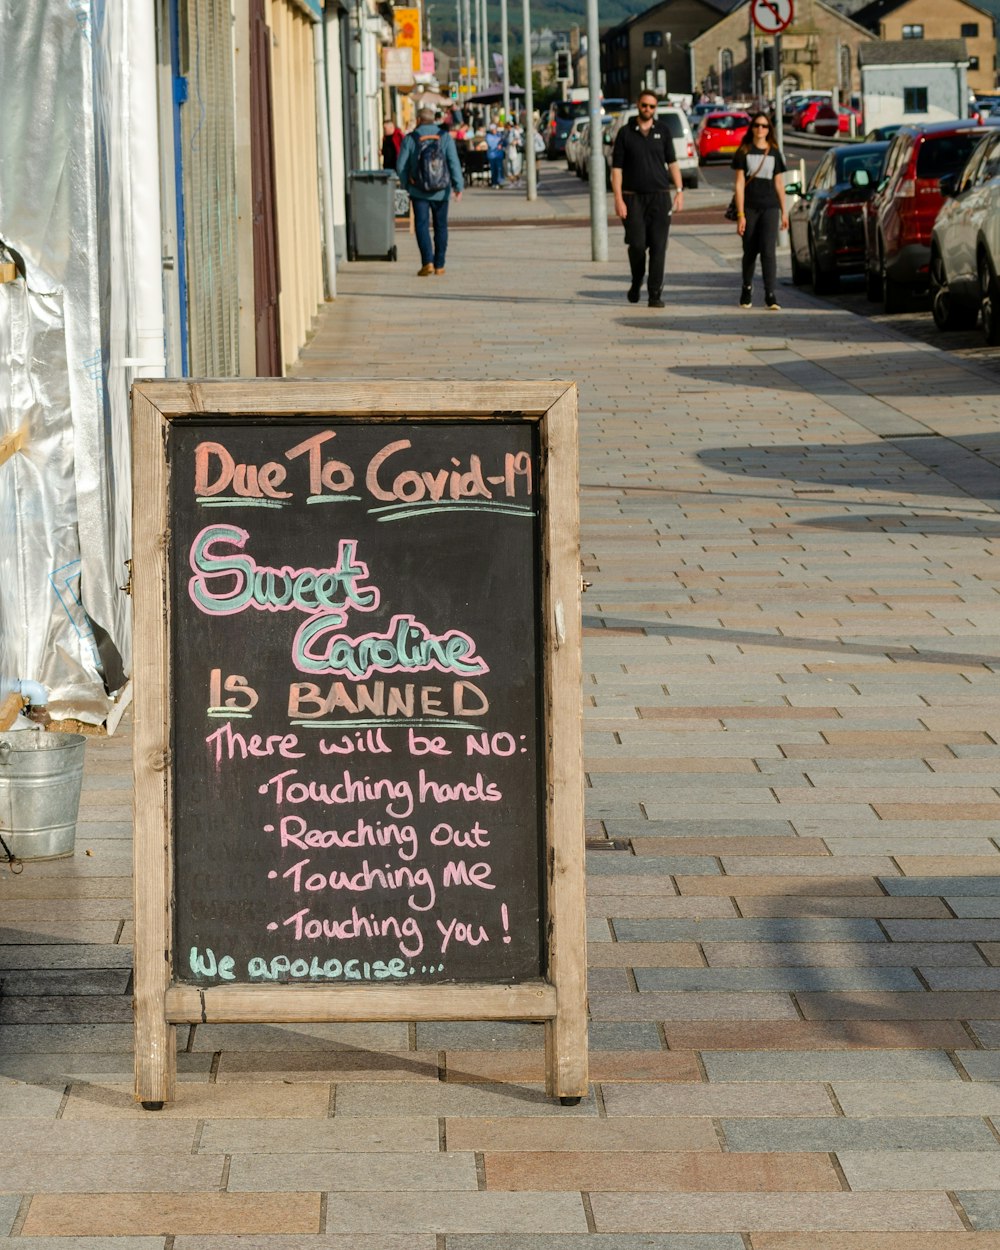 Due To Covid-19
Sweet
Caroline
Is BANNED
There will be NO:
• Touching hands
• Reaching Out
• Touching Me
• Touching you!
We apologise....